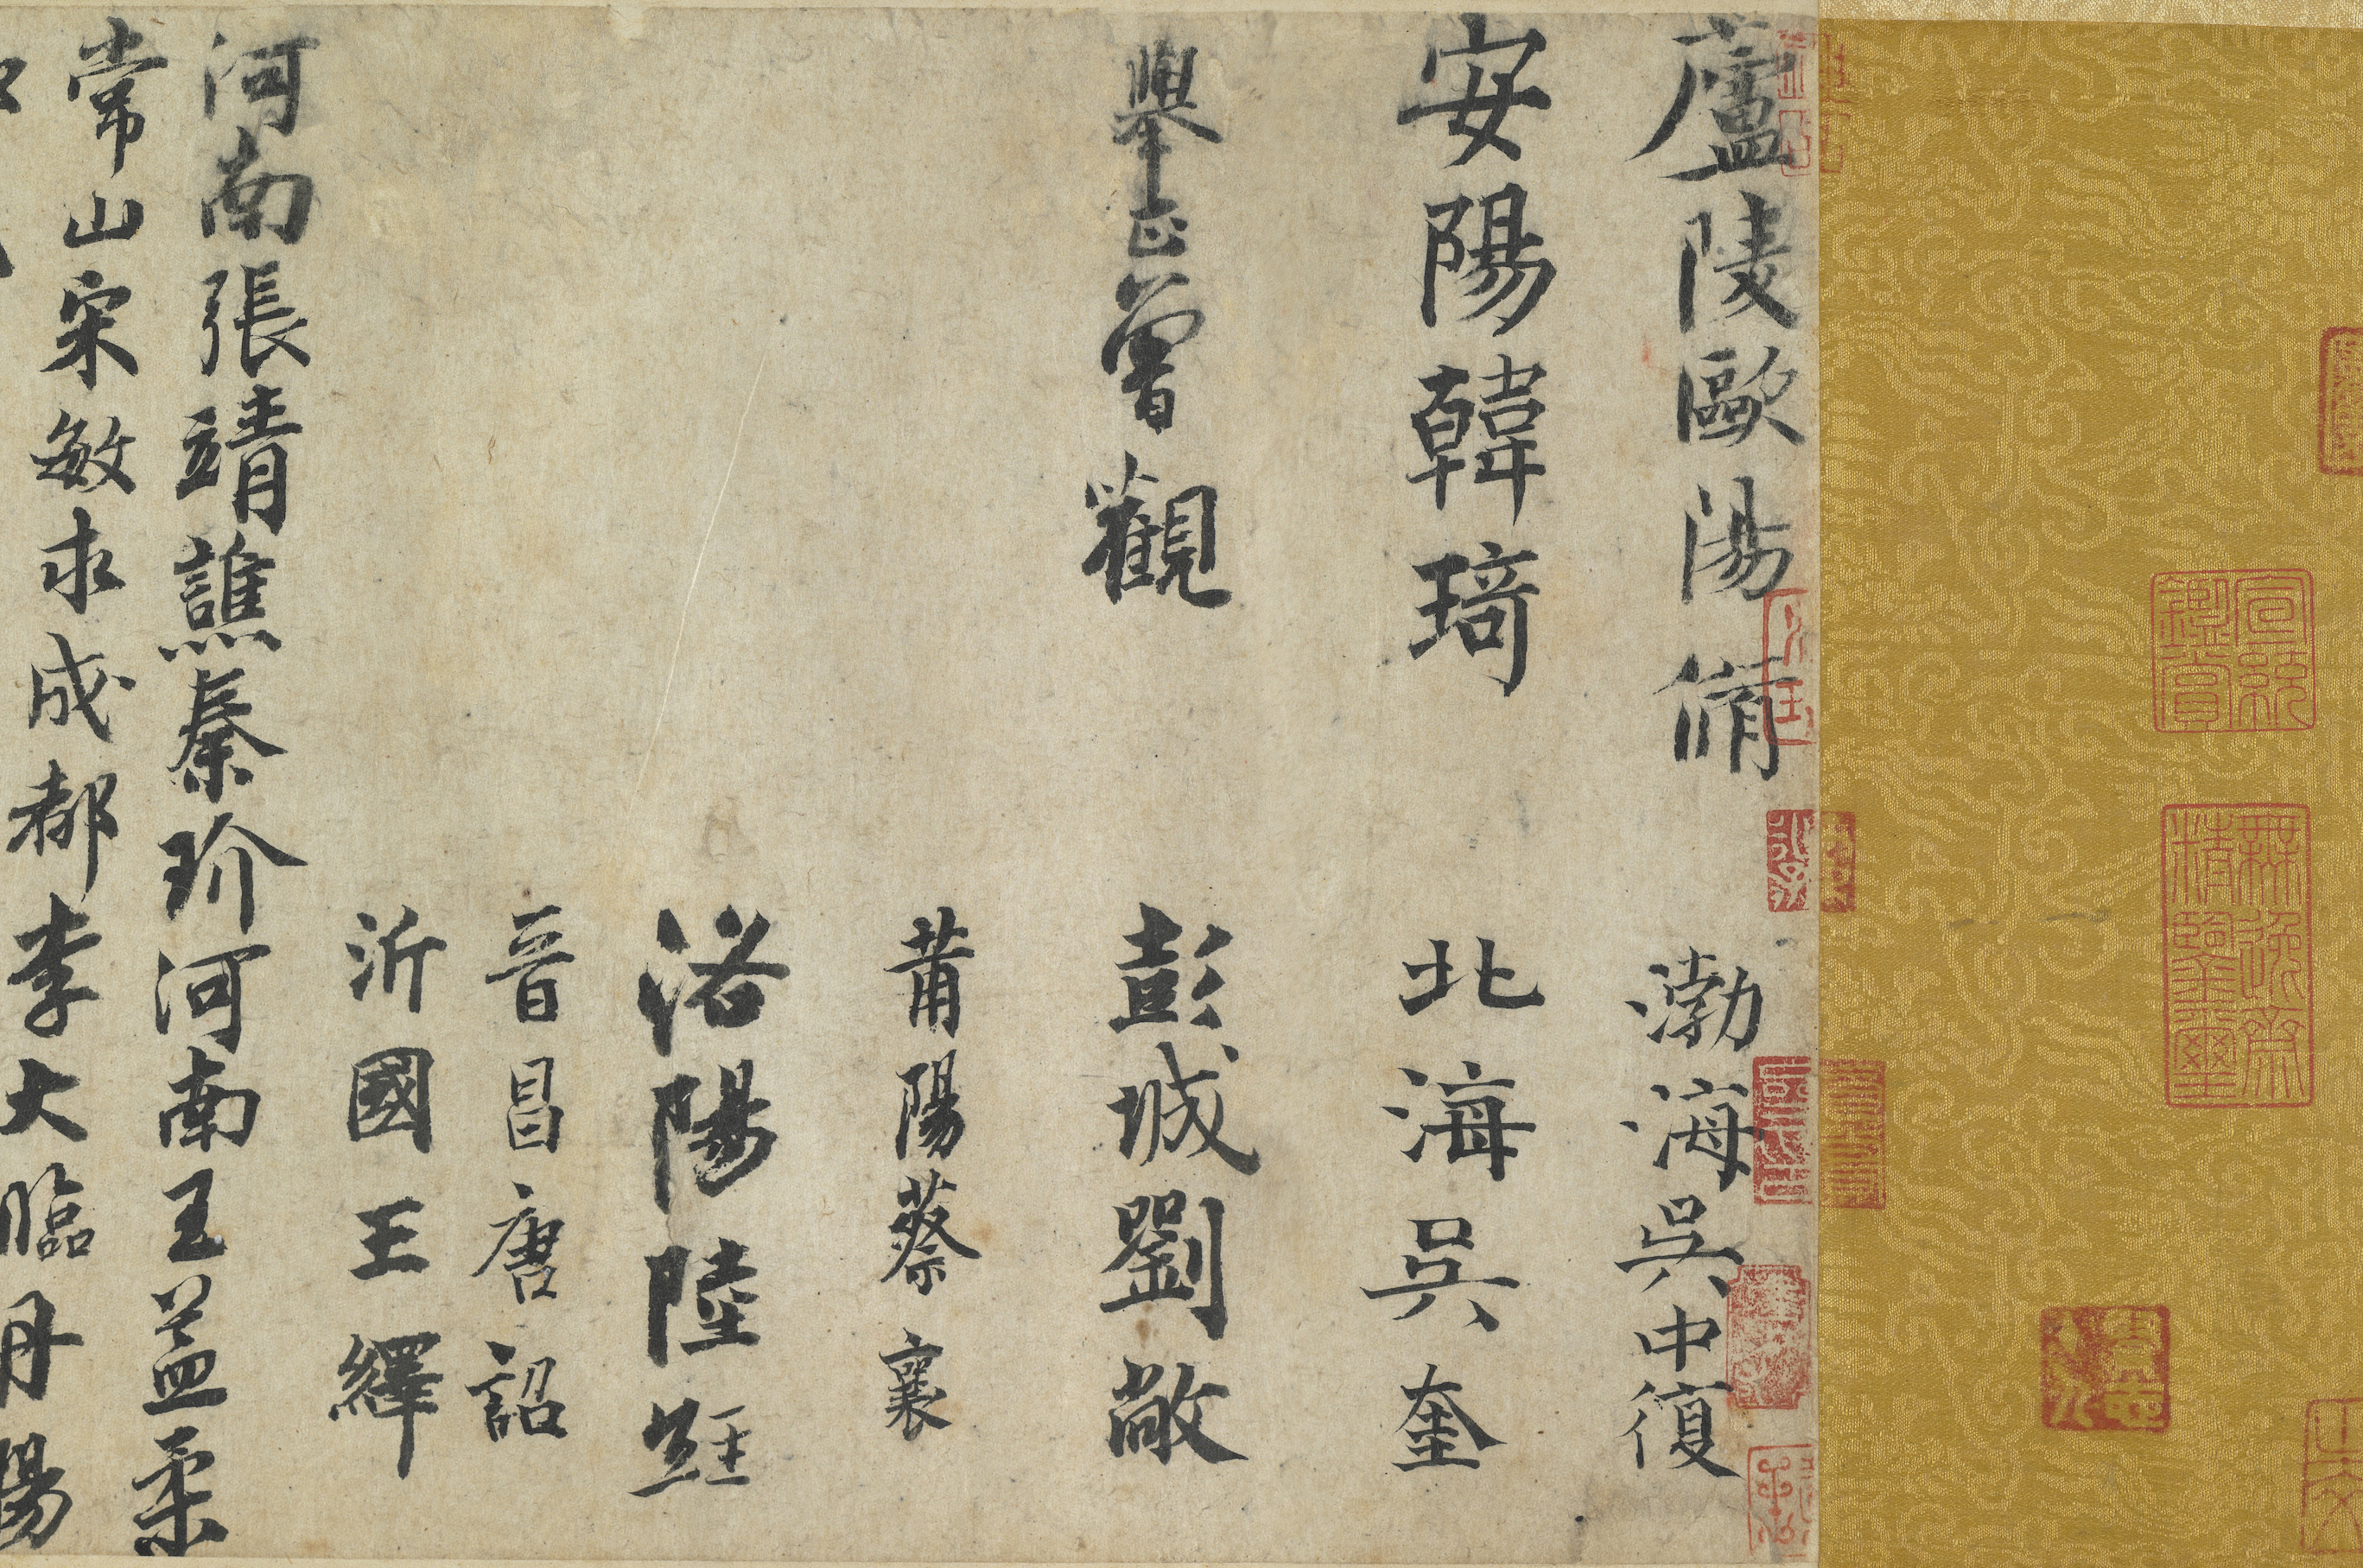 廬陵歐陽脩
渤海吳中復
安陽韓琦
北海吳奎
舉正曾觀
彭城劉敞
莆陽蔡襄
洛陽陸經
晉昌唐詔
沂國王繹
河南張靖譙秦玠河南王益柔
常山宋敏求成都李大臨丹陽
宣統鑒賞
無逸齋精鑒璽